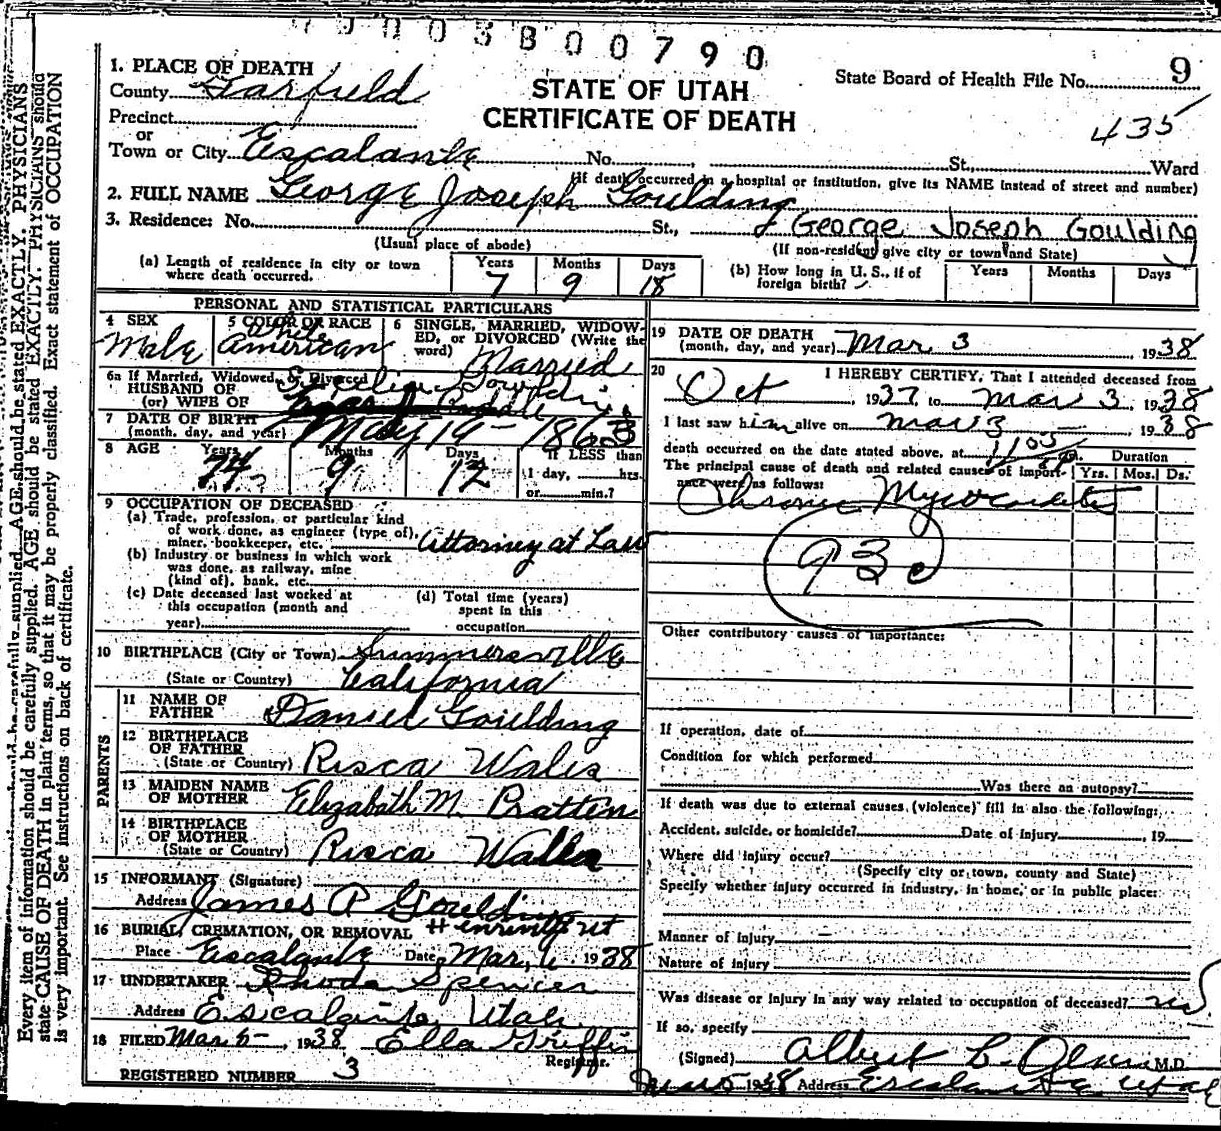 7 9 0 0 3 8 0 0 7 9 0
1. PLACE OF DEATH
County Garfield
Precinct
or
Town or City Escalante No. , St., Ward
STATE OF UTAH
CERTIFICATE OF DEATH
State Board of Health File No. 9
435
(If death occurred in a hospital or institution, give its NAME instead of street and number)
2. FULL NAME George Joseph Goulding
3. Residence: No. St., George Joseph Goulding
(Usual place of abode) (If non-resident give city or town and State)
(a) Length of residence in city or town where death occurred. Years 7 Months 9 Days 18
(b) How long in U. S., if of foreign birth? Years Months Days
PERSONAL AND STATISTICAL PARTICULARS
4 SEX Male
5 COLOR OR RACE White American
6 SINGLE, MARRIED, WIDOWED, or DIVORCED (Write the word) Married
6a If Married, Widowed, or Divorced
HUSBAND OF
(or) WIFE OF
7 DATE OF BIRTH
(month, day, and year) May 19 - 1863
8 AGE Years 74 Months 9 Days 12 If LESS than
1 day, hrs.
or min.?
9 OCCUPATION OF DECEASED
(a) Trade, profession, or particular kind
of work done, as engineer (type of),
miner, bookkeeper, etc. Attorney at Law
(b) Industry or business in which work
was done, as railway, mine
(kind of), bank, etc.
(c) Date deceased last worked at
this occupation (month and
year)
(d) Total time (years)
spent in this
occupation
10 BIRTHPLACE (City or Town) Summersville
(State or Country) California
PARENTS
11 NAME OF
FATHER Daniel Goulding
12 BIRTHPLACE
OF FATHER
(State or Country) Risca Wales
13 MAIDEN NAME
OF MOTHER Elizabeth M. Pratten
14 BIRTHPLACE
OF MOTHER
(State or Country) Risca Wales
15 INFORMANT (Signature)
Address James P Goulding
Henrieville ut
16 BURIAL, CREMATION, OR REMOVAL
Place Escalante Date Mar, 6 1938
17 UNDERTAKER Rhoda Spencer
Address Escalante Utah
18 FILED Mar 5 - , 1938 Ella Griffin
Registrar.
REGISTERED NUMBER 3
19 DATE OF DEATH
(month, day, and year) Mar 3 1938
20 I HEREBY CERTIFY, That I attended deceased from
Oct , 1937, to Mar 3, 1938
I last saw him alive on Mar 3 1938
death occurred on the date stated above, at m. Duration
The principal cause of death and related causes of import- Yrs. Mos. Ds.
ance were as follows:
Chronic Myocarditis
93c
Other contributory causes of importance:
If operation, date of
Condition for which performed
Was there an autopsy?
If death was due to external causes (violence) fill in also the following:
Accident, suicide, or homicide? Date of injury , 19
Where did injury occur?
(Specify city or town, county and State)
Specify whether injury occurred in industry, in home, or in public place:
Manner of injury
Nature of injury
Was disease or injury in any way related to occupation of deceased? no
If so, specify
(Signed) M.D.
1938 Address Escalante Utah
Every item of information should be carefully supplied. AGE should be stated EXACTLY. PHYSICIANS should
state CAUSE OF DEATH in plain terms, so that it may be properly classified. Exact statement of OCCUPATION
is very important. See instructions on back of certificate.